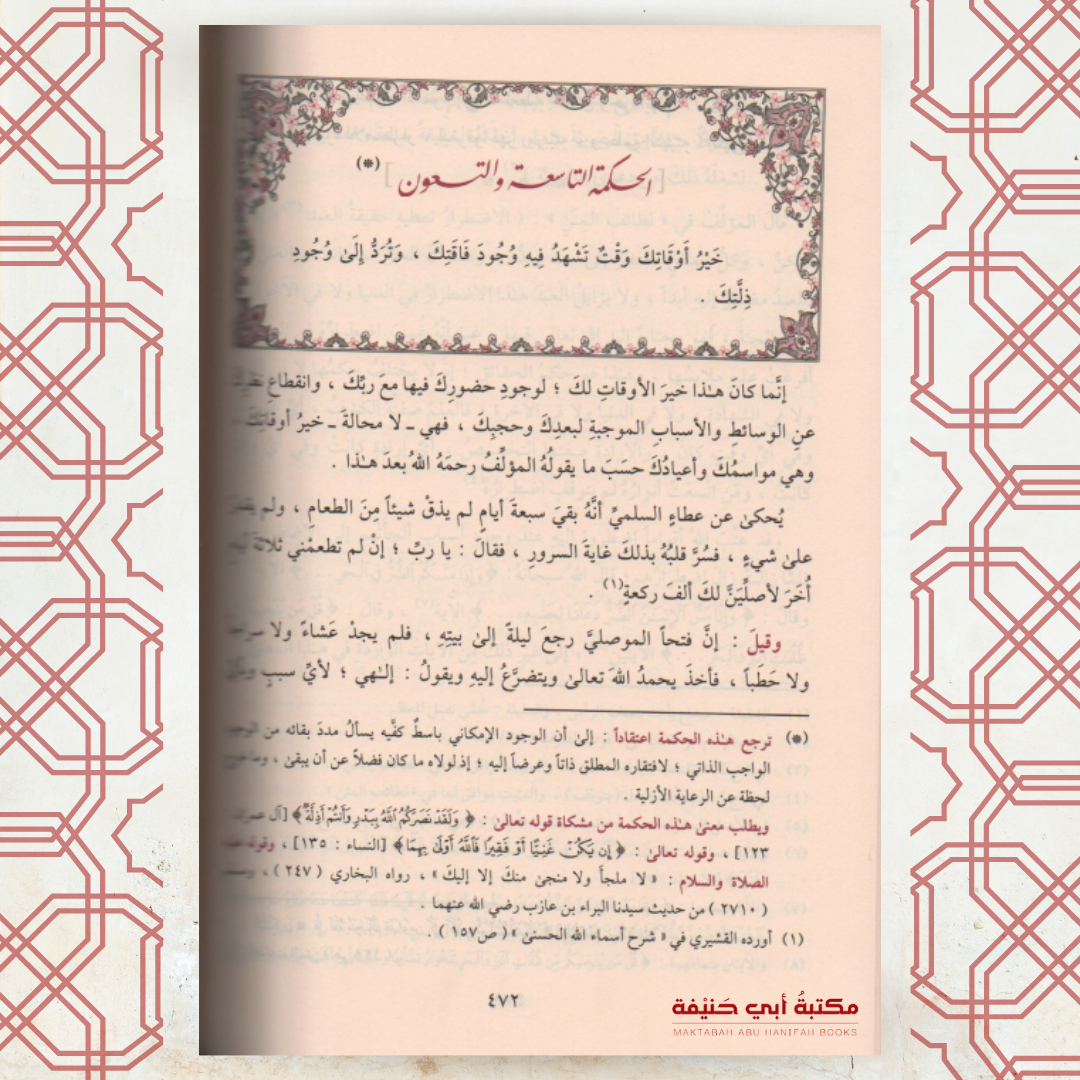 الحكمة التاسعة والتسعون (*)
خَيْرُ أَوْقَاتِكَ وَقْتٌ تَشْهَدُ فِيهِ وُجُودَ فَاقَتِكَ ، وَتُرَدُّ إِلَىٰ وُجُودِ
ذِلَّتِكَ .
إنَّما كانَ هـٰذا خيرَ الأوقاتِ لكَ ؛ لوجودِ حضورِكَ فيها مع ربِّكَ ، وانقطاعِ نظرِكَ
عنِ الوسائطِ والأسبابِ الموجبةِ لبعدِكَ وحجبِكَ ، فهي ـ لا محالةَ ـ خيرُ أوقاتِكَ
وهي مواسمُكَ وأعيادُكَ حسَبَ ما يقولُهُ المؤلِّفُ رحمَهُ اللهُ بعدَ هـٰذا .
يُحكىٰ عن عطاءٍ السلميِّ أنَّهُ بقيَ سبعةَ أيامٍ لم يذقْ شيئاً مِنَ الطعامِ ، ولم يقدرْ
علىٰ شيءٍ ، فسُرَّ قلبُهُ بذلكَ غايةَ السرورِ ، فقالَ : يا ربِّ ؛ إنْ لم تطعمْني ثلاثةَ أيامٍ
أُخَرَ لأصلِّيَنَّ لكَ ألفَ ركعةٍ(١) .
وقيلَ : إنَّ فتحاً الموصليَّ رجعَ ليلةً إلىٰ بيتِهِ ، فلم يجدْ عَشاءً ولا سراجاً
ولا حَطَباً ، فأخذَ يحمدُ اللهَ تعالىٰ ويتضرَّعُ إليهِ ويقولُ : إلـٰهي ؛ لأيِّ سببٍ
(*) ترجع هـٰذه الحكمة اعتقاداً : إلىٰ أن الوجود الإمكاني باسطٌ كفَّيه يسألُ مددَ بقائه من الوجود
الواجب الذاتي ؛ لافتقاره المطلق ذاتاً وعرضاً إليه ؛ إذ لولاه ما كان فضلاً عن أن يبقىٰ ، وما خرج
لحظة عن الرعاية الأزلية .
ويطلب معنىٰ هـٰذه الحكمة من مشكاة قوله تعالىٰ : ﴿ وَلَقَدْ نَصَرَكُمُ اللَّهُ بِبَدْرٍ وَأَنتُمْ أَذِلَّةٌ ﴾ [آل عمران :
١٢٣] ، وقوله تعالىٰ : ﴿ إِن يَكُنْ غَنِيًّا أَوْ فَقِيرًا فَاللَّهُ أَوْلَىٰ بِهِمَا ﴾ [النساء : ١٣٥] ، وقوله عليه
الصلاة والسلام : « لا ملجأ ولا منجىٰ منك إلا إليك » ، رواه البخاري ( ٢٤٧ ) ، ومسلم
( ٢٧١٠ ) من حديث سيدنا البراء بن عازب رضي الله عنهما .
(١) أورده القشيري في « شرح أسماء الله الحسنىٰ » ( ص ١٥٧ ) .
٤٧٢
مكتبةُ أبي حَنيْفة
MAKTABAH ABU HANIFAH BOOKS